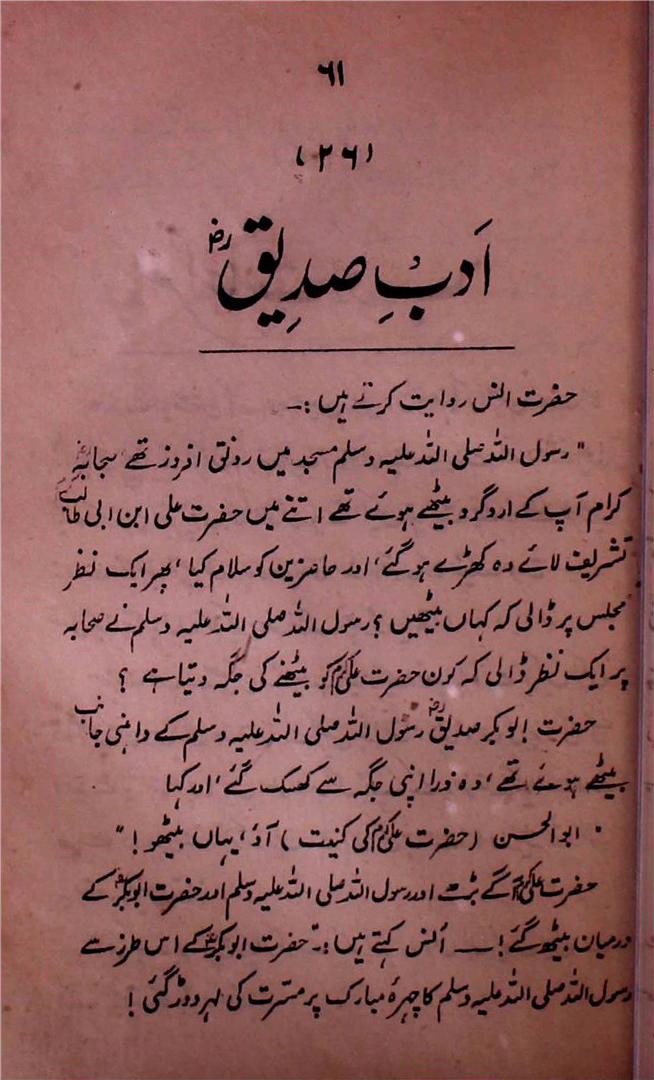 ۶۱
(۲۶)
اَدبِ صدِیق رض
حضرت انس روایت کرتے ہیں :۔
" رسول اللہ صلی اللہ علیہ وسلم مسجد میں رونق افروز تھے، صحابہ
کرام آپ کے ارد گرد بیٹھے ہوئے تھے اتنے میں حضرت علی ابن ابی طالب
تشریف لائے وہ کھڑے ہو گئے، اور حاضرین کو سلام کیا، پھر ایک نظر
مجلس پر ڈالی کہ کہاں بیٹھیں؟ رسول اللہ صلی اللہ علیہ وسلم نے صحابہ
پر ایک نظر ڈالی کہ کون حضرت علی کو بیٹھنے کی جگہ دیتا ہے ؟
حضرت ابوبکر صدیق رض رسول اللہ صلی اللہ علیہ وسلم کے داہنی جانب
بیٹھے ہوئے تھے، وہ ذرا اپنی جگہ سے کھسک گئے، اور کہا
" ابوالحسن (حضرت علی کی کنیت) آؤ، یہاں بیٹھو! "
حضرت علی آگے بڑھے اور رسول اللہ صلی اللہ علیہ وسلم اور حضرت ابوبکر کے
درمیان بیٹھ گئے! ــــ انس کہتے ہیں :۔ حضرت ابوبکر کے اس طرز سے
رسول اللہ صلی اللہ علیہ وسلم کا چہرۂ مبارک پر مسرت کی لہر دوڑ گئی !